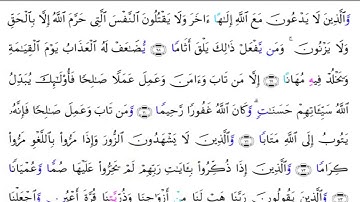 وَٱلَّذِينَ لَا يَدْعُونَ مَعَ ٱللَّهِ إِلَـٰهًا ءَاخَرَ وَلَا يَقْتُلُونَ ٱلنَّفْسَ ٱلَّتِى حَرَّمَ ٱللَّهُ إِلَّا بِٱلْحَقِّ
وَلَا يَزْنُونَ ۚ وَمَن يَفْعَلْ ذَٰلِكَ يَلْقَ أَثَامًا ۝٦٨ يُضَـٰعَفْ لَهُ ٱلْعَذَابُ يَوْمَ ٱلْقِيَـٰمَةِ
وَيَخْلُدْ فِيهِۦ مُهَانًا ۝٦٩ إِلَّا مَن تَابَ وَءَامَنَ وَعَمِلَ عَمَلًا صَـٰلِحًا فَأُو۟لَـٰٓئِكَ يُبَدِّلُ
ٱللَّهُ سَيِّـَٔاتِهِمْ حَسَنَـٰتٍ ۗ وَكَانَ ٱللَّهُ غَفُورًا رَّحِيمًا ۝٧٠ وَمَن تَابَ وَعَمِلَ صَـٰلِحًا فَإِنَّهُۥ
يَتُوبُ إِلَى ٱللَّهِ مَتَابًا ۝٧١ وَٱلَّذِينَ لَا يَشْهَدُونَ ٱلزُّورَ وَإِذَا مَرُّوا۟ بِٱللَّغْوِ مَرُّوا۟
كِرَامًا ۝٧٢ وَٱلَّذِينَ إِذَا ذُكِّرُوا۟ بِـَٔايَـٰتِ رَبِّهِمْ لَمْ يَخِرُّوا۟ عَلَيْهَا صُمًّا وَعُمْيَانًا
۝٧٣ وَٱلَّذِينَ يَقُولُونَ رَبَّنَا هَبْ لَنَا مِنْ أَزْوَٰجِنَا وَذُرِّيَّـٰتِنَا قُرَّةَ أَعْيُنٍ وَٱجْعَلْنَا